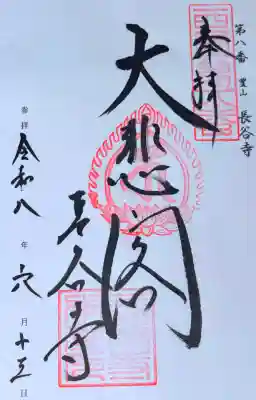 第八番 豊山 長谷寺
奉拝
大悲閣
長谷寺
参拝 令和八年六月十三日